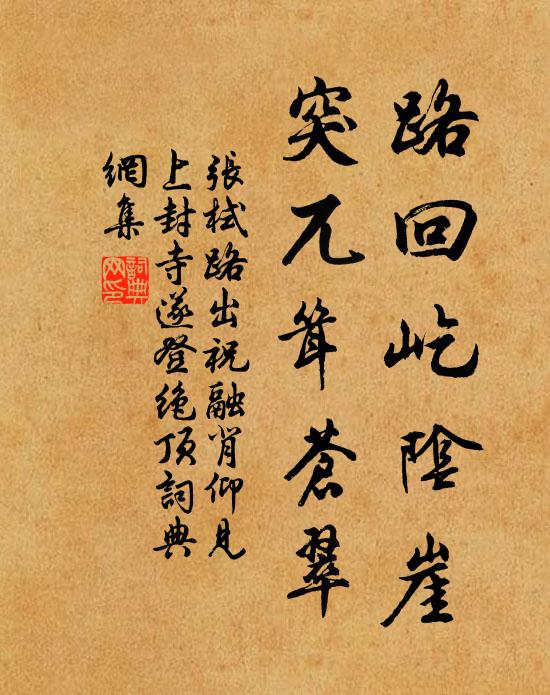 路回屹陰崖
突兀耸蒼翠
張栻路出祝融背仰見
上封寺遂登绝顶詞典
網集
詞典
网印